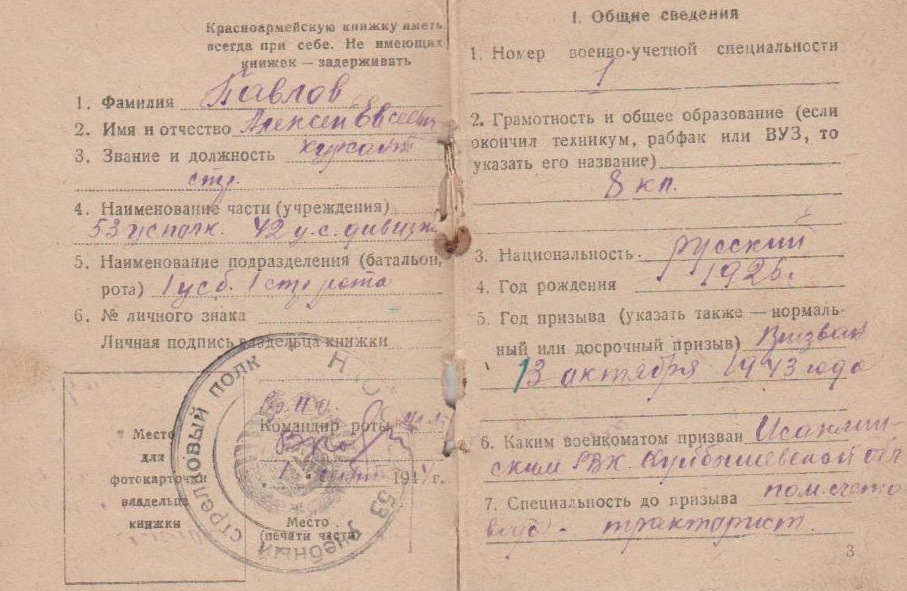 Красноармейскую книжку иметь
всегда при себе. Не имеющих
книжек — задерживать
1. Фамилия Павлов
2. Имя и отчество Алексей Евсеевич
3. Звание и должность курсант
стр.
4. Наименование части (учреждения)
53 уc полк. 42 у.с. дивизии
5. Наименование подразделения (батальон,
рота) 1 усб. 1 стр рота
6. № личного знака
Личная подпись владельца книжки
Место
для
фотокарточки
владельца
книжки
Командир роты
1 194 г.
Место
(печати части)
53 учебный стрелковый полк * Н
I. Общие сведения
1. Номер военно-учетной специальности
1
2. Грамотность и общее образование (если
окончил техникум, рабфак или ВУЗ, то
указать его название)
8 кл.
3. Национальность русский
4. Год рождения 1926 г.
5. Год призыва (указать также — нормаль-
ный или досрочный призыв) Призван
13 октября 1943 года
6. Каким военкоматом призван Исаклин-
ским РВК Куйбышевской обл
7. Специальность до призыва пом. счето
вода - тракторист.
3